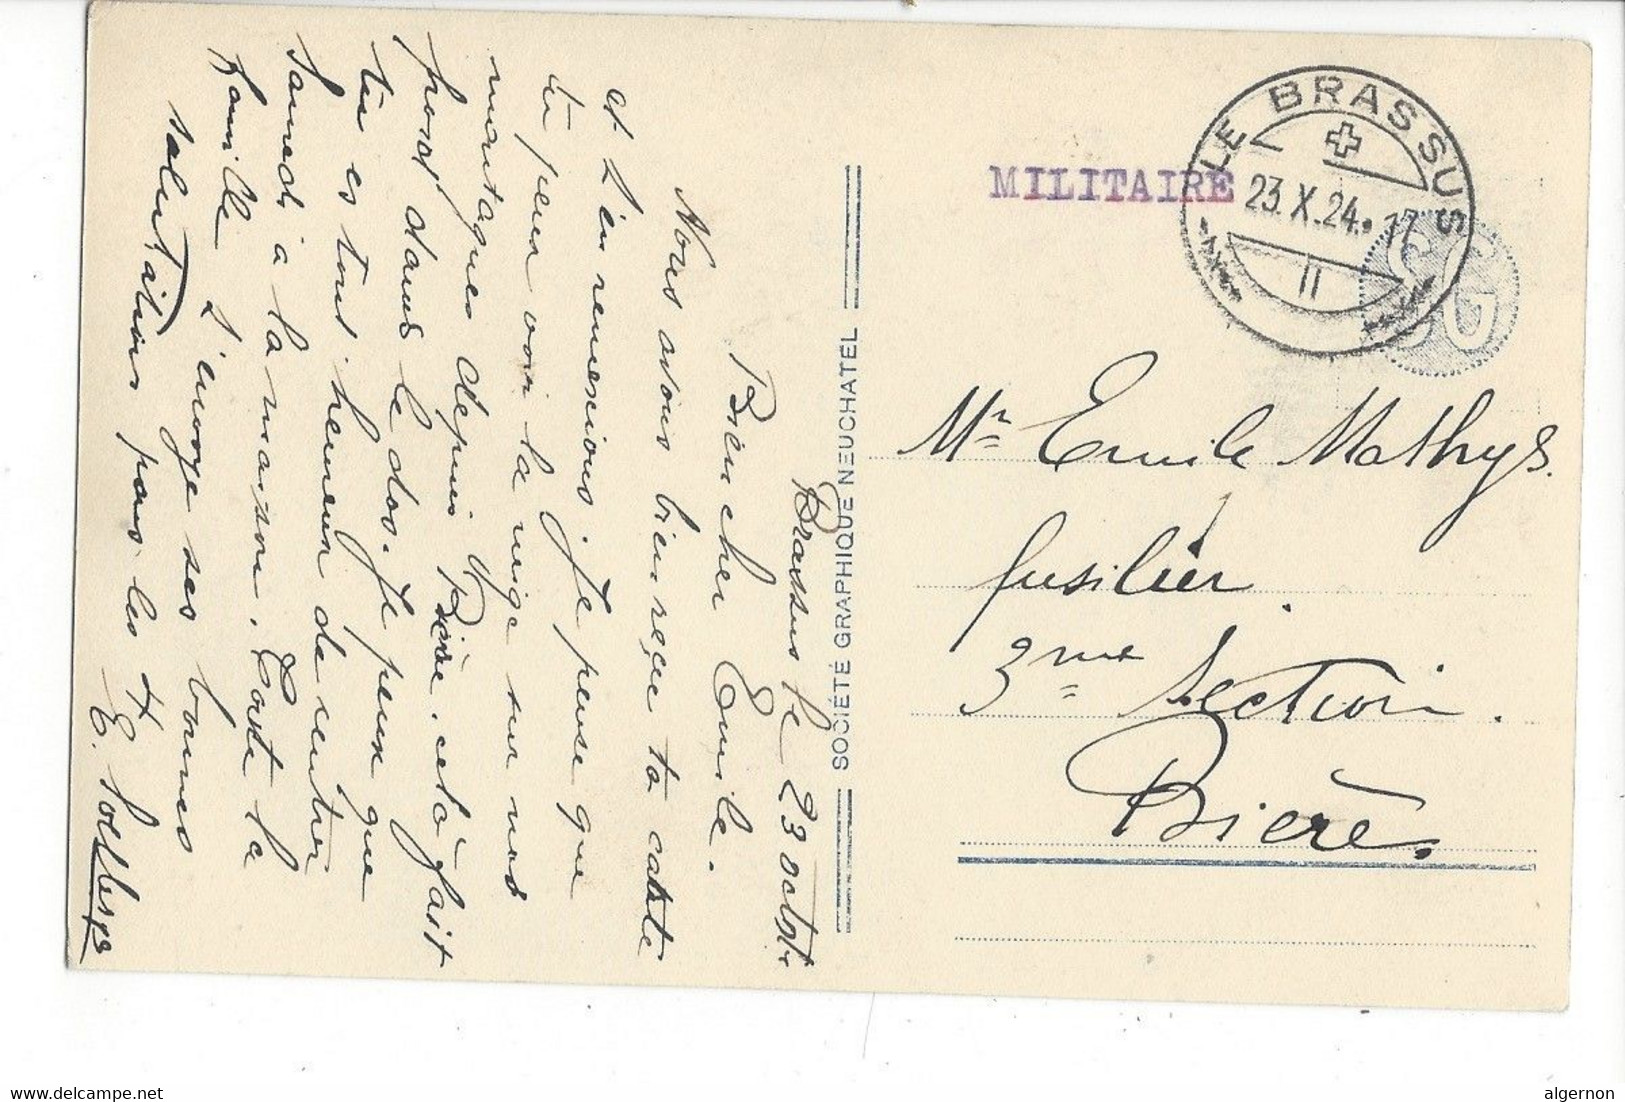 Brassus le 23 octob
Bien cher Emile.
Nous avons bien reçu ta carte
et t'en remercions. Je pense que
tu peux voir la neige sur nos
montagnes depuis Bière, cela fait
froid dans le dos. Je peux que
tu es tout heureux de rentrer
samedi à la maison. Toute la
famille t'envoye ses bonnes
salutations pour les 4
E.
SOCIÉTÉ GRAPHIQUE NEUCHATEL
MILITAIRE
LE BRASSUS
23.X.24. 17
SG
Mr Emile Mathys.
fusilier.
3me Section.
Bière.
algernon